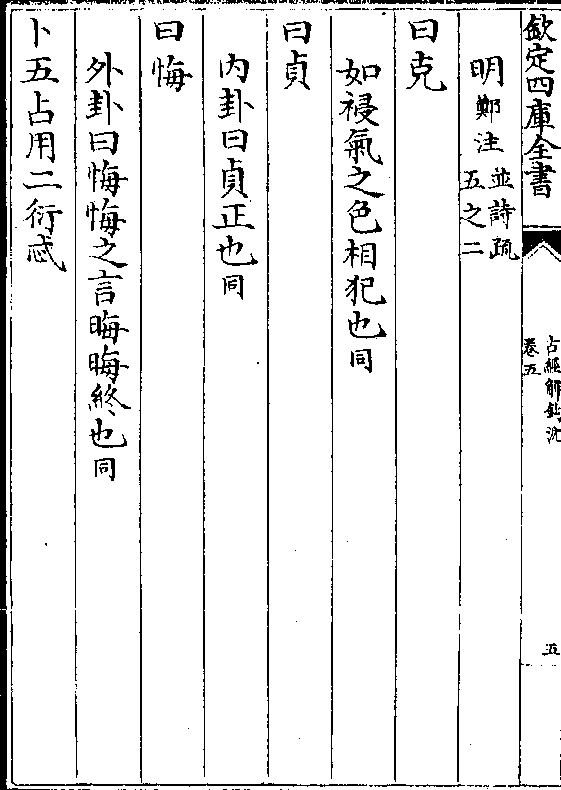 欽定四庫全書
古經解鉤沈
卷五
五
明鄭注並詩疏五之二
曰克
如祲氣之色相犯也同
曰貞
內卦曰貞正也同
曰悔
外卦曰悔悔之言晦晦終也同
卜五占用二衍忒